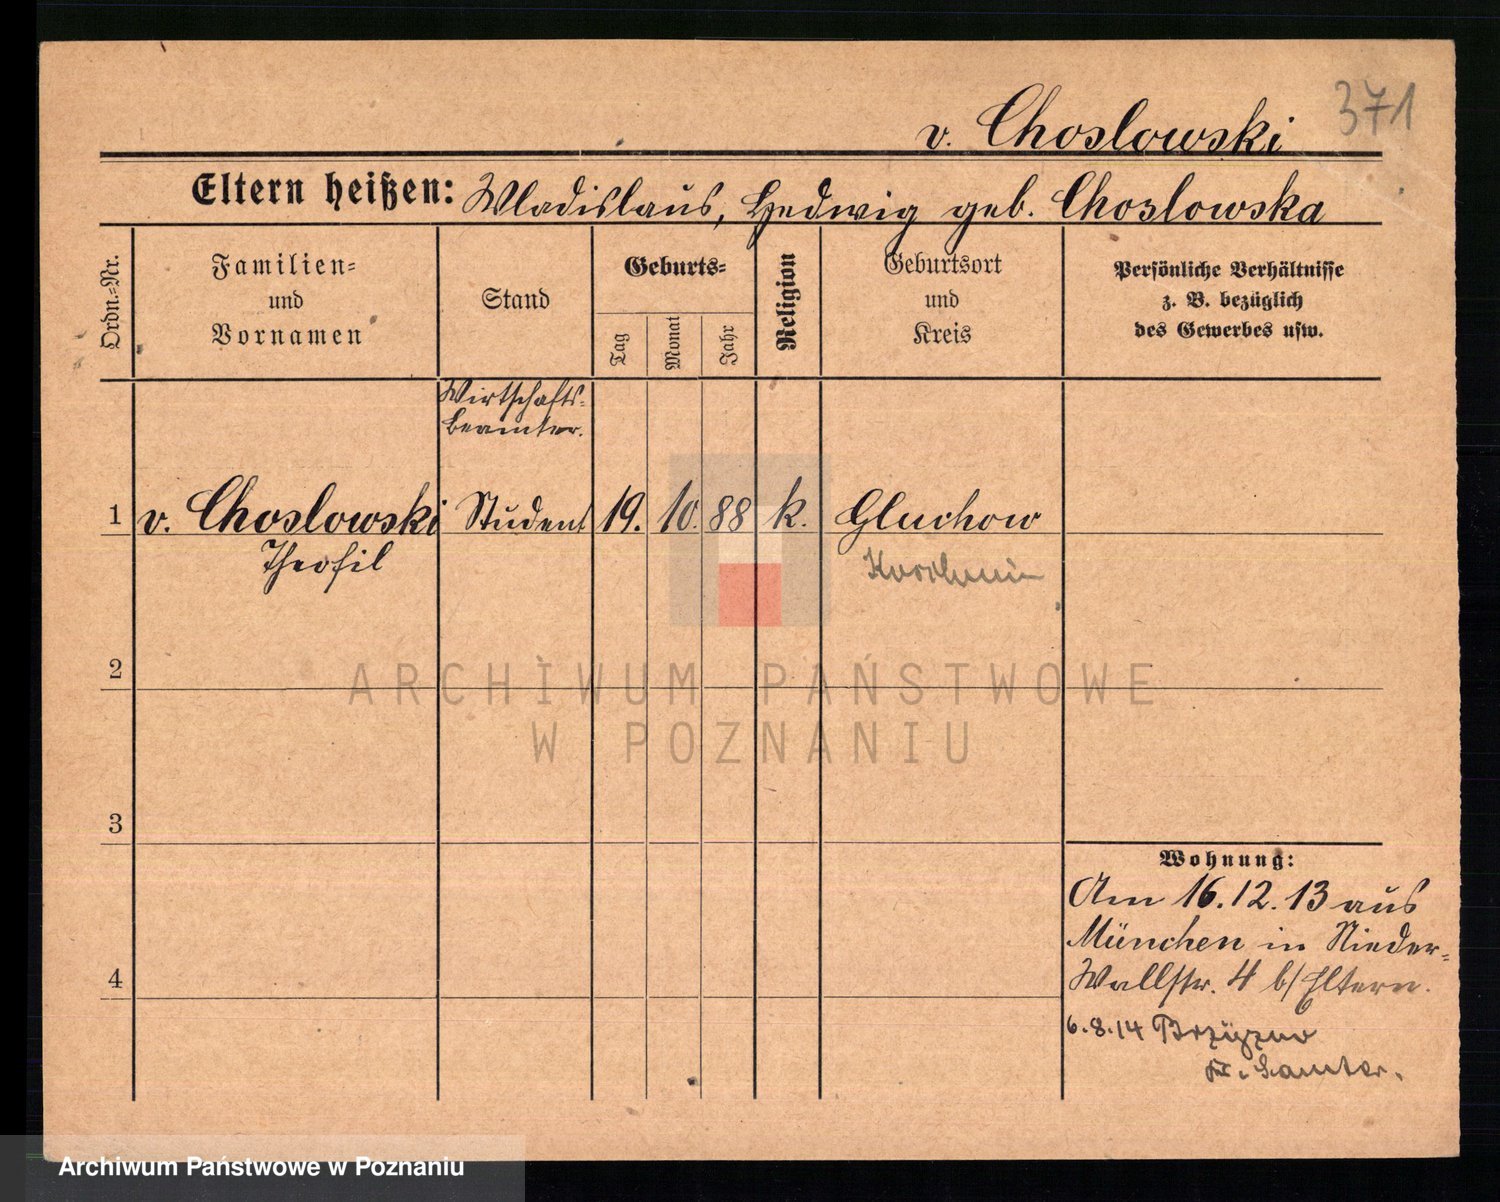 371
v. Choslowski
Eltern heißen: Wladislaus, Hedwig geb. Choslowska
Ordn.-Nr.
Familien-
und
Vornamen
Stand
Geburts-
Tag
Monat
Jahr
Religion
Geburtsort
und
Kreis
Persönliche Verhältnisse
z. B. bezüglich
des Gewerbes usw.
Wirtschafts-
Beamter.
1 v. Choslowski Student 19. 10. 88 k. Gluchow
Theofil
2
3
4
Wohnung:
Am 16.12.13 aus
München in Nieder-
Wallstr. 4 b/ Eltern.
6.8.14
Kr. Samter.
ARCHIWUM PAŃSTWOWE
W POZNANIU
Archiwum Państwowe w Poznaniu